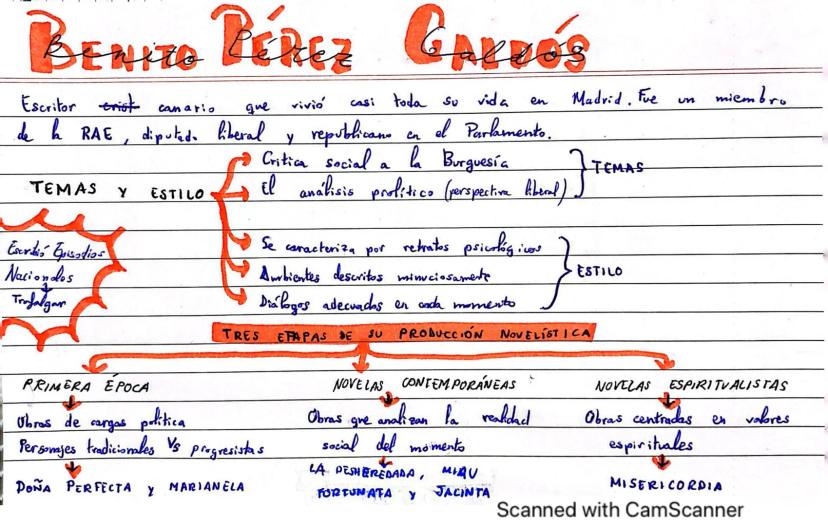 BENITO PÉREZ GALDÓS
Escritor crist canario que vivió casi toda su vida en Madrid. Fue un miembro
de la RAE, diputado liberal y republicano en el Parlamento.
TEMAS Y ESTILO
Crítica social a la Burguesía
El análisis prolítico (perspectiva liberal)
TEMAS
Se caracteriza por retratos psicológicos
Ambientes descritos minuciosamente
Diálogos adecuados en cada momento
ESTILO
Escribió Episodios
Nacionales
Trafalgar
TRES ETAPAS DE SU PRODUCCIÓN NOVELÍSTICA
PRIMERA ÉPOCA
Obras de cargas política
Personajes tradicionales Vs progresistas
DOÑA PERFECTA Y MARIANELA
NOVELAS CONTEMPORÁNEAS
Obras que analizan la realidad
social del momento
LA DESHEREDADA, MIAU
FORTUNATA Y JACINTA
NOVELAS ESPIRITUALISTAS
Obras centradas en valores
espirituales
MISERICORDIA
Scanned with CamScanner